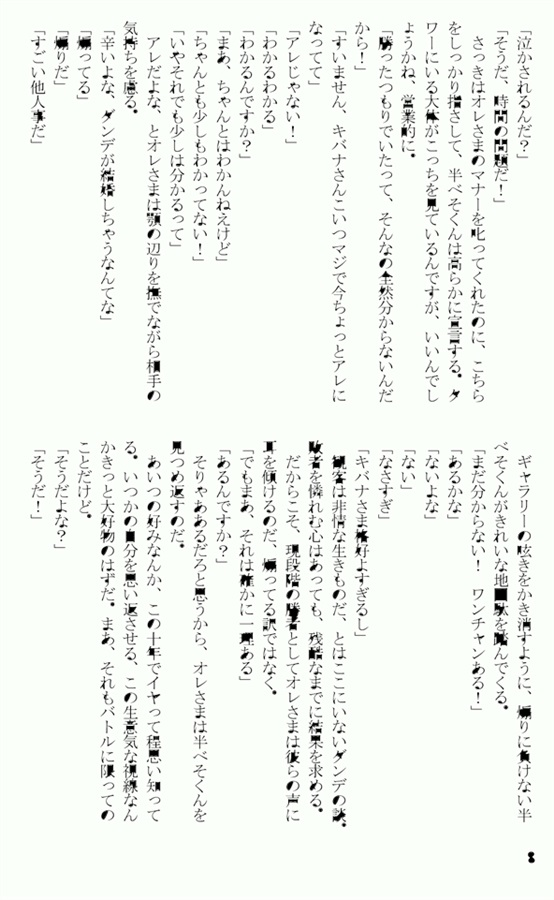 「泣かされるんだ？」
「そうだ、時間の問題だ！」
　さっきはオレさまのマナーを叱ってくれたのに、こちら
をしっかり指さして、半べそくんは高らかに宣言する。タ
ワーにいる大体がこっちを見ているんですが、いいんでし
ょうかね、営業的に。
「勝ったつもりでいたって、そんなの全然分からないんだ
から！」
「すいません、キバナさんこいつマジで今ちょっとアレに
なってて」
「アレじゃない！」
「わかるわかる」
「わかるんですか？」
「まあ、ちゃんとはわかんねえけど」
「ちゃんとも少しもわかってない！」
「いやそれでも少しは分かるって」
　アレだよな、とオレさまは顎の辺りを撫でながら相手の
気持ちを慮る。
「辛いよな、ダンデが結婚しちゃうなんてな」
「煽ってる」
「煽りだ」
「すごい他人事だ」
　ギャラリーの呟きをかき消すように、煽りに負けない半
べそくんがきれいな地団駄を踏んでくる。
「まだ分からない！　ワンチャンある！」
「あるかな」
「ないよな」
「ない」
「なさすぎ」
「キバナさま格好よすぎるし」
　観客は非情な生きものだ、とはここにいないダンデの談。
敗者を憐れむ心はあっても、残酷なまでに結果を求める。
　だからこそ、現段階の勝者としてオレさまは彼らの声に
耳を傾けるのだ、煽ってる訳ではなく。
「でもまあ、それは確かに一理ある」
「あるんですか？」
　そりゃああるだろと思うから、オレさまは半べそくんを
見つめ返すのだ。
　あいつの好みなんか、この十年でイヤって程思い知って
る。いつかの自分を思い返させる、この生意気な視線なん
かきっと大好物のはずだ。まあ、それもバトルに限っての
ことだけど。
「そうだよな？」
「そうだ！」
8